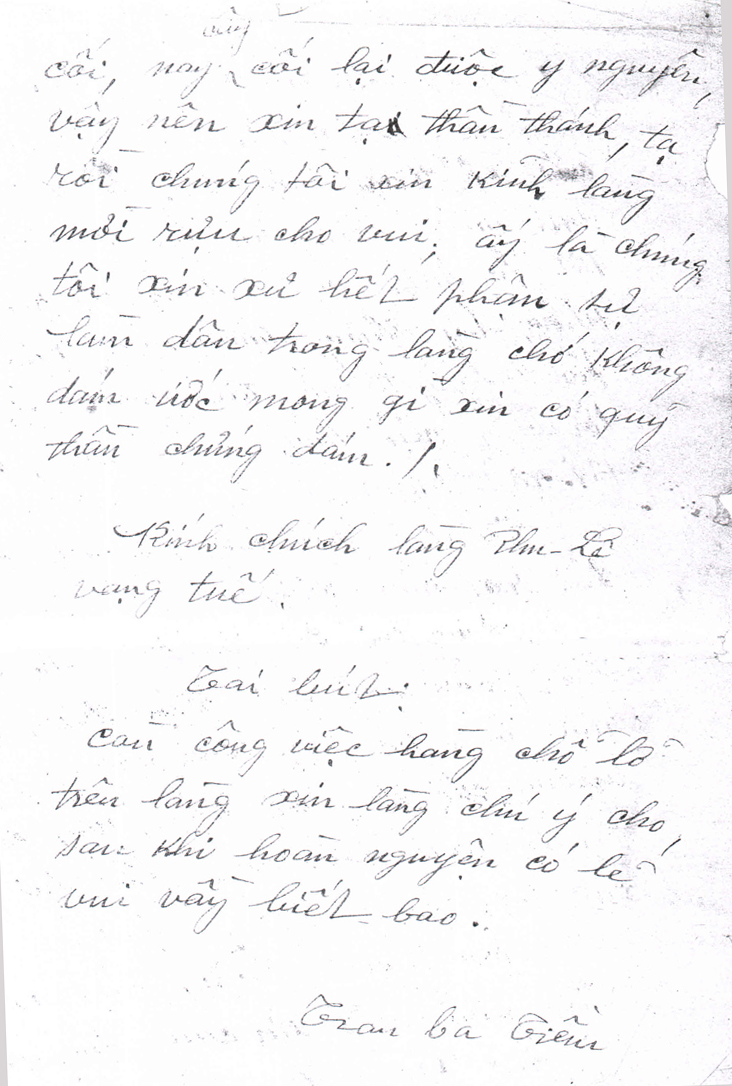 ấy
cối, nay cối lại được y nguyên,
vậy nên xin tại thần thánh, tạ
rồi chúng tôi xin kính làng
mời rượu cho vui, ấy là chúng
tôi xin xử hết phận sự
làm dân trong làng chớ không
dám ước mong gì xin có quỷ
thần chứng dám./.
Kính chích làng Phu-Lê
vạng tuế.
Tai bút:
Còn công việc hàng chô lô
trên làng xin làng chú ý cho,
sau khi hoàn nguyện có lẽ
vui vầy biết bao.
Tran ba Tiềm